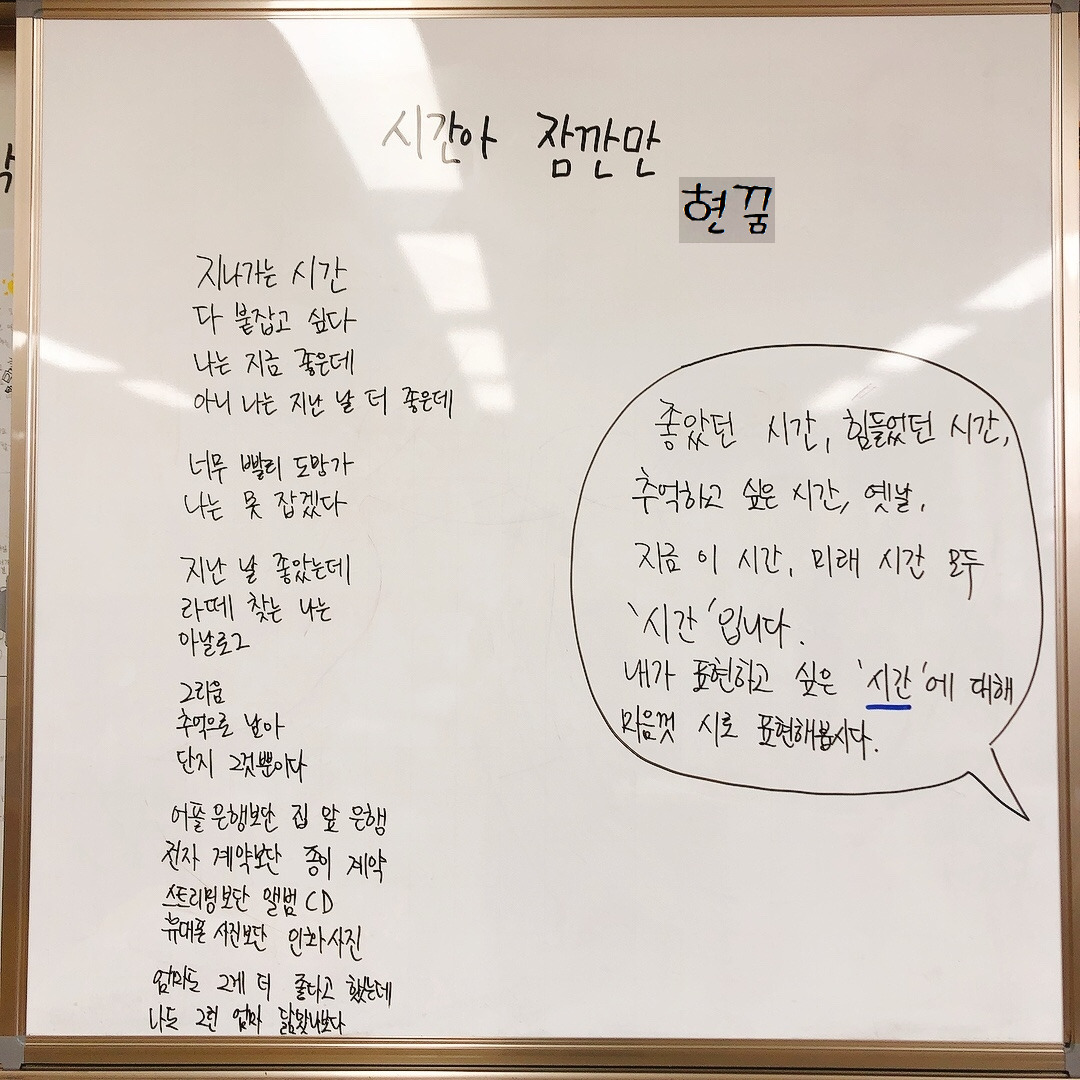 시간아 잠깐만
현꿈
지나가는 시간
다 붙잡고 싶다
나는 지금 좋은데
아니 나는 지난 날 더 좋은데
너무 빨리 도망가
나는 못 잡겠다
지난 날 좋았는데
라떼 찾는 나는
아날로그
그리움
추억으로 남아
단지 그것뿐이다
어플 은행보단 집 앞 은행
전자 계약보단 종이 계약
스트리밍보단 앨범 CD
휴대폰 사진보단 인화사진
엄마도 그게 더 좋다고 했는데
나도 그런 엄마 닮았나보다
좋았던 시간, 힘들었던 시간,
추억하고 싶은 시간, 옛날,
지금 이 시간, 미래 시간 모두
'시간'입니다.
내가 표현하고 싶은 '시간'에 대해
마음껏 시로 표현해봅시다.